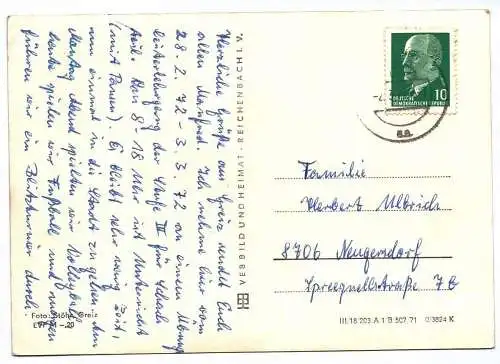 Herzliche Grüße aus Greiz sendet Euch
allen Manfred. Ich nehme hier vom
28.2.72 - 3.3.72 an einem Übungs-
leiterlehrgang der Stufe III für Schach
teil. Von 8 - 18 Uhr ist Unterricht
(mit Pausen). Es bleibt sehr wenig Zeit,
um einmal in die Stadt zu gehen. Am
Montag Abend spielten wir Volleyball,
heute spielen wir Fußball und morgen
führen wir ein Blitzturnier durch.
Foto: Stöhr, Greiz
VEB BILD UND HEIMAT · REICHENBACH I. V.
10
DEUTSCHE
DEMOKRATISCHE REPUBLIK
Familie
Herbert Ulbrich
8706 Neugersdorf
Spreequellstraße 7 B
III 18 203 A 1 B 507 71 0/3824 K